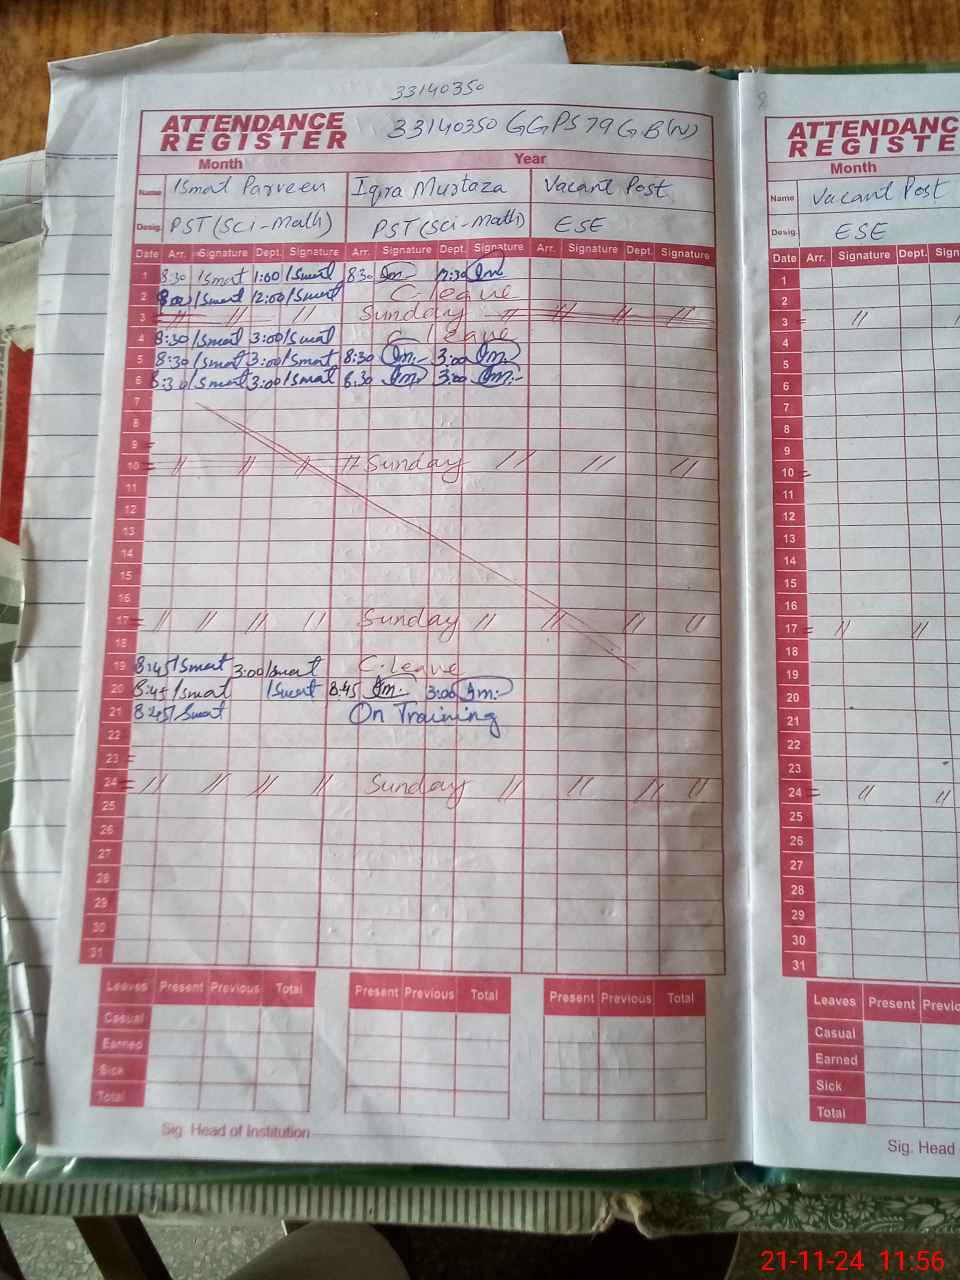 33140350
ATTENDANCE REGISTER 33140350 GGPS 79 GB(W)
Month Year
Name Ismat Parveen Iqra Murtaza Vacant Post
Desig. PST (Sci-Math) PST (Sci-Math) ESE
Date Arr. Signature Dept. Signature Arr. Signature Dept. Signature Arr. Signature Dept. Signature
1 8:30 Ismat 1:00 Ismat 8:30 12:30
2 8:00 Ismat 12:00 Ismat C. leave
3 // // // Sunday // // // //
4 8:30 Ismat 3:00 Ismat C leave
5 8:30 Ismat 3:00 Ismat 8:30 3:00
6 8:30 Ismat 3:00 Ismat 8:30 3:00
7
8
9
10 // // // // Sunday // // //
11
12
13
14
15
16
17 // // // // Sunday // // // //
18
19 8:45 Ismat 3:00 Ismat C. leave
20 8:45 Ismat Ismat 8:45 3:00
21 8:45 Ismat On Training
22
23
24 // // // // Sunday // // // //
25
26
27
28
29
30
31
Leaves Present Previous Total Present Previous Total Present Previous Total
Casual
Earned
Sick
Total
Sig. Head of Institution
8
ATTENDANC
REGISTE
Month
Name Vacant Post
Desig. ESE
Date Arr. Signature Dept. Signature
1
2
3 // //
4
5
6
7
8
9
10
11
12
13
14
15
16
17 // //
18
19
20
21
22
23
24 // //
25
26
27
28
29
30
31
Leaves Present Previo
Casual
Earned
Sick
Total
Sig. Head
21-11-24 11:56